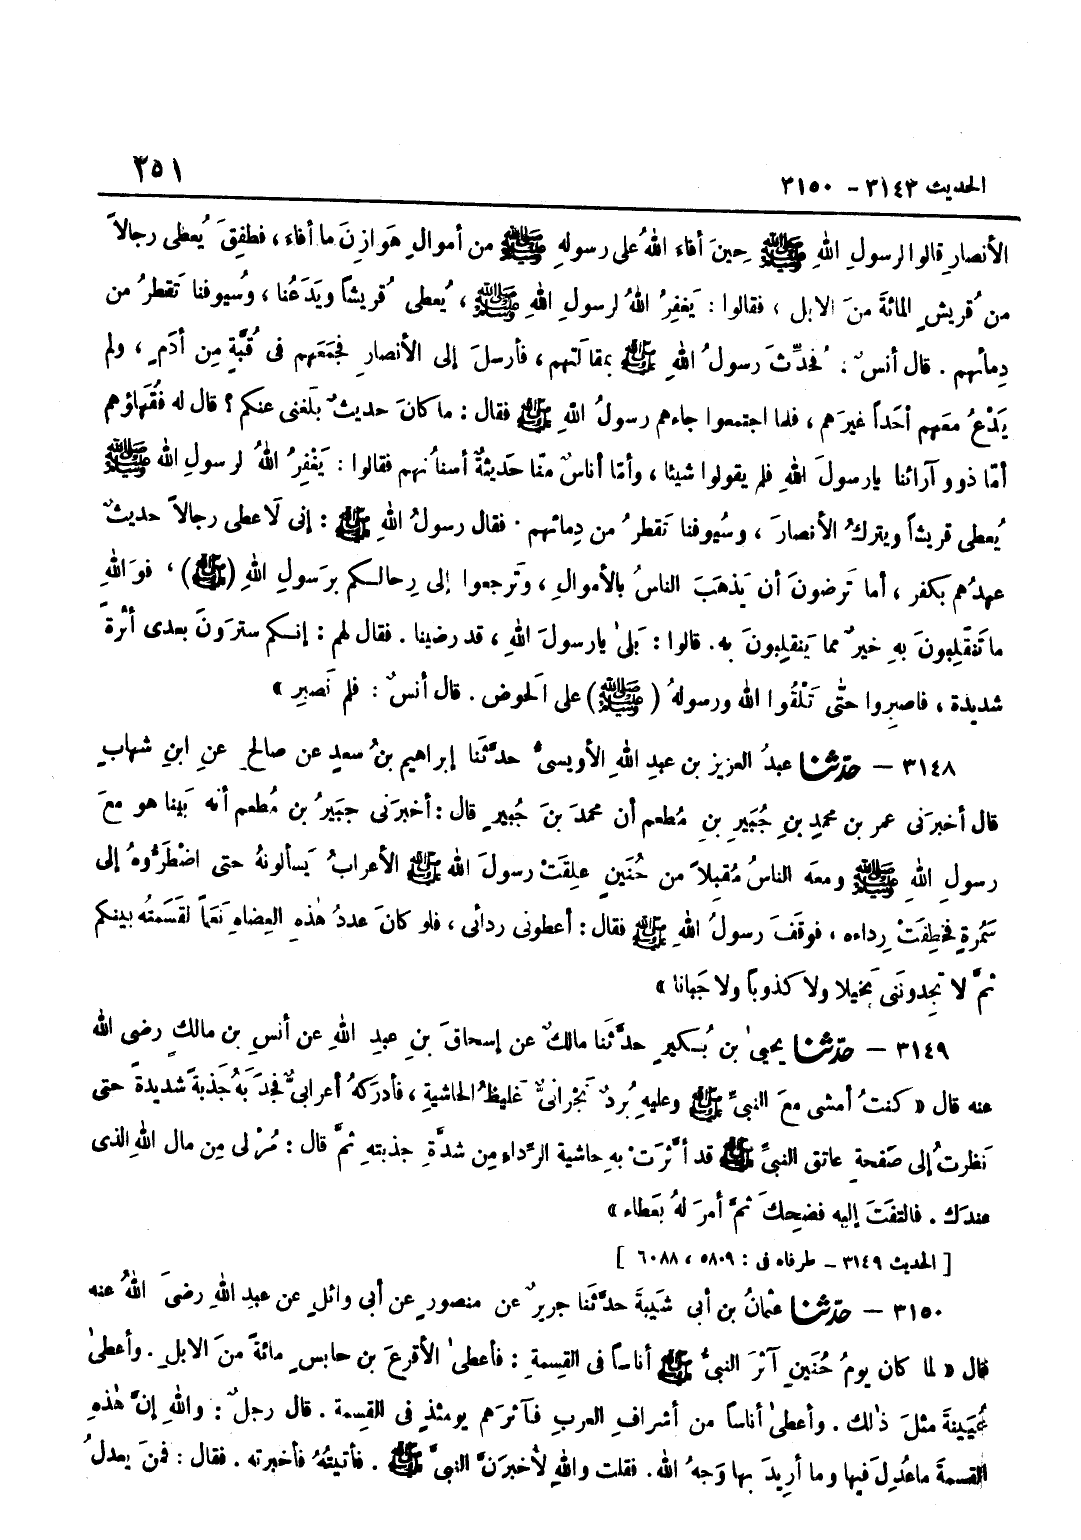 الحديث ٣١٤٣ - ٣١٥٠
٣٥١
الأنصارِ قالوا لرسولِ اللهِ ﷺ حِينَ أفاءَ اللهُ على رسولهِ ﷺ من أموالِ هَوازِنَ ما أفاء ، فطفِقَ يُعطى رجالاً
من قُريشٍ المائةَ منَ الابل ، فقالوا : يَغفِرُ اللهُ لرسولِ اللهِ ﷺ ، يُعطى قُريشاً ويَدَعُنا ، وسُيوفنا تَقطرُ من
دِمائهم . قال أنسٌ : فحُدِّثَ رسولُ اللهِ ﷺ بمقالَتهم ، فأرسلَ إلى الأنصارِ فجمَعَهم فى قُبَّةٍ مِن أدَمٍ ، ولم
يَدْعُ معَهم أحَداً غيرَهم ، فلما اجتمعوا جاءهم رسولُ اللهِ ﷺ فقال : ما كانَ حديثٌ بلَغنى عنكم ؟ قال له فُقَهاؤهم
أمّا ذوو آرائنا يارسولَ اللهِ فلم يقولوا شيئا ، وأمّا أناسٌ منّا حَديثةٌ أسنانُهم فقالوا : يَغْفِرُ اللهُ لرسولِ الله ﷺ
يُعطى قريشاً ويتركُ الأنصارَ ، وسُيوفنا تَقطرُ من دِمائهم . فقال رسولُ اللهِ ﷺ : إنى لَأعطى رجالاً حديثٌ
عهدُهم بكفر ، أما تَرضونَ أن يَذهَبَ الناسُ بالأموالِ ، وتَرجعوا إلى رِحالكم برَسولِ اللهِ (ﷺ) ، فوَاللهِ
ما تَنقَلِبونَ بهِ خيرٌ مما يَنقلِبونَ به. قالوا : بَلىٰ يارسولَ الله ، قد رضينا . فقال لهم : إنكم سترَونَ بعدى أثْرةً
شديدة ، فاصبِروا حتّى تَلْقُوا الله ورسولهُ ( ﷺ ) على الَحوض . قال أنسٌ : فلم نَصبِر »
٣١٤٨ - حدّثنا عبدُ العزيز بن عبدِ اللهِ الأويسىُّ حدَّثَنا إبراهيم بنُ سعدٍ عن صالحٍ عنِ ابنِ شهابٍ
قال أخبرَنى عمر بن محمدِ بنِ جُبَيرِ بنِ مُطعم أن محمدَ بنَ جُبيرٍ قال : أخبرَنى جبَيرُ بن مُطعم أنه بَينا هو معَ
رسولِ اللهِ ﷺ ومعَه الناسُ مُقبلاً من حُنَينٍ علِقَتْ رسولَ الله ﷺ الأعرابُ يَسألونهُ حتى اضْطَرُّوهُ إلى
سَمُرةٍ فخطِفَتْ رِداءه ، فوقَفَ رسولُ اللهِ ﷺ فقال : أعطونى ردائى ، فلو كانَ عددُ هٰذهِ العِضاهِ نَعَماً لقَسَمتُه بينكم
ثمَّ لا تَجِدونَنى بَخيلا ولا كذوباً ولا جَبانا »
٣١٤٩ - حدّثنا يحيىٰ بن بُكيرٍ حدَّثَنا مالكٌ عن إسحاقَ بنِ عبدِ اللهِ عن أنسِ بن مالكٍ رضى الله
عنه قال « كنتُ أمشى معَ النبىِّ ﷺ وعليهِ بُردٌ نَجْرانىٌّ غليظُ الحاشيةِ ، فأدرَكهُ أعرابىٌّ فجذَبهُ جَذبةً شديدةً حتى
نَظرتُ إلى صَفحةِ عاتق النبىِّ ﷺ قد أثَّرَتْ بهِ حاشيةُ الرِّداءِ مِن شدَّةِ جذبتهِ ثمَّ قال : مُرْ لى مِن مال اللهِ الذى
عندَك . فالتفَتَ إليه فضحِكَ ثمَّ أمرَ لهُ بعَطاء »
[ الحديث ٣١٤٩ - طرفاه فى : ٥٨٠٩ ، ٦٠٨٨ ]
٣١٥٠ - حدّثنا عثمانُ بن أبى شَيبةَ حدَّثَنا جريرٌ عن منصورٍ عن أبى وائلٍ عن عبدِ اللهِ رضىَ اللهُ عنه
قال « لما كان يومُ حُنَينٍ آثَرَ النبىُّ ﷺ أناساً فى القِسمةِ : فأعطىٰ الأقرعَ بن حابسٍ مائةً منَ الابلِ . وأعطىٰ
عُيَينةَ مثلَ ذٰلك . وأعطىٰ أناساً من أشرافِ العربِ فآثرَهم يومئذٍ فى القسمة . قال رجلٌ : واللهِ إنَّ هٰذهِ
القسمةَ ماعُدِلَ فيها وما أريدَ بها وَجهُ الله. فقلت واللهِ لأُخبرَنَّ النبىَّ ﷺ . فأتيتُهُ فأخبرته . فقال : فمنَ يعدلُ